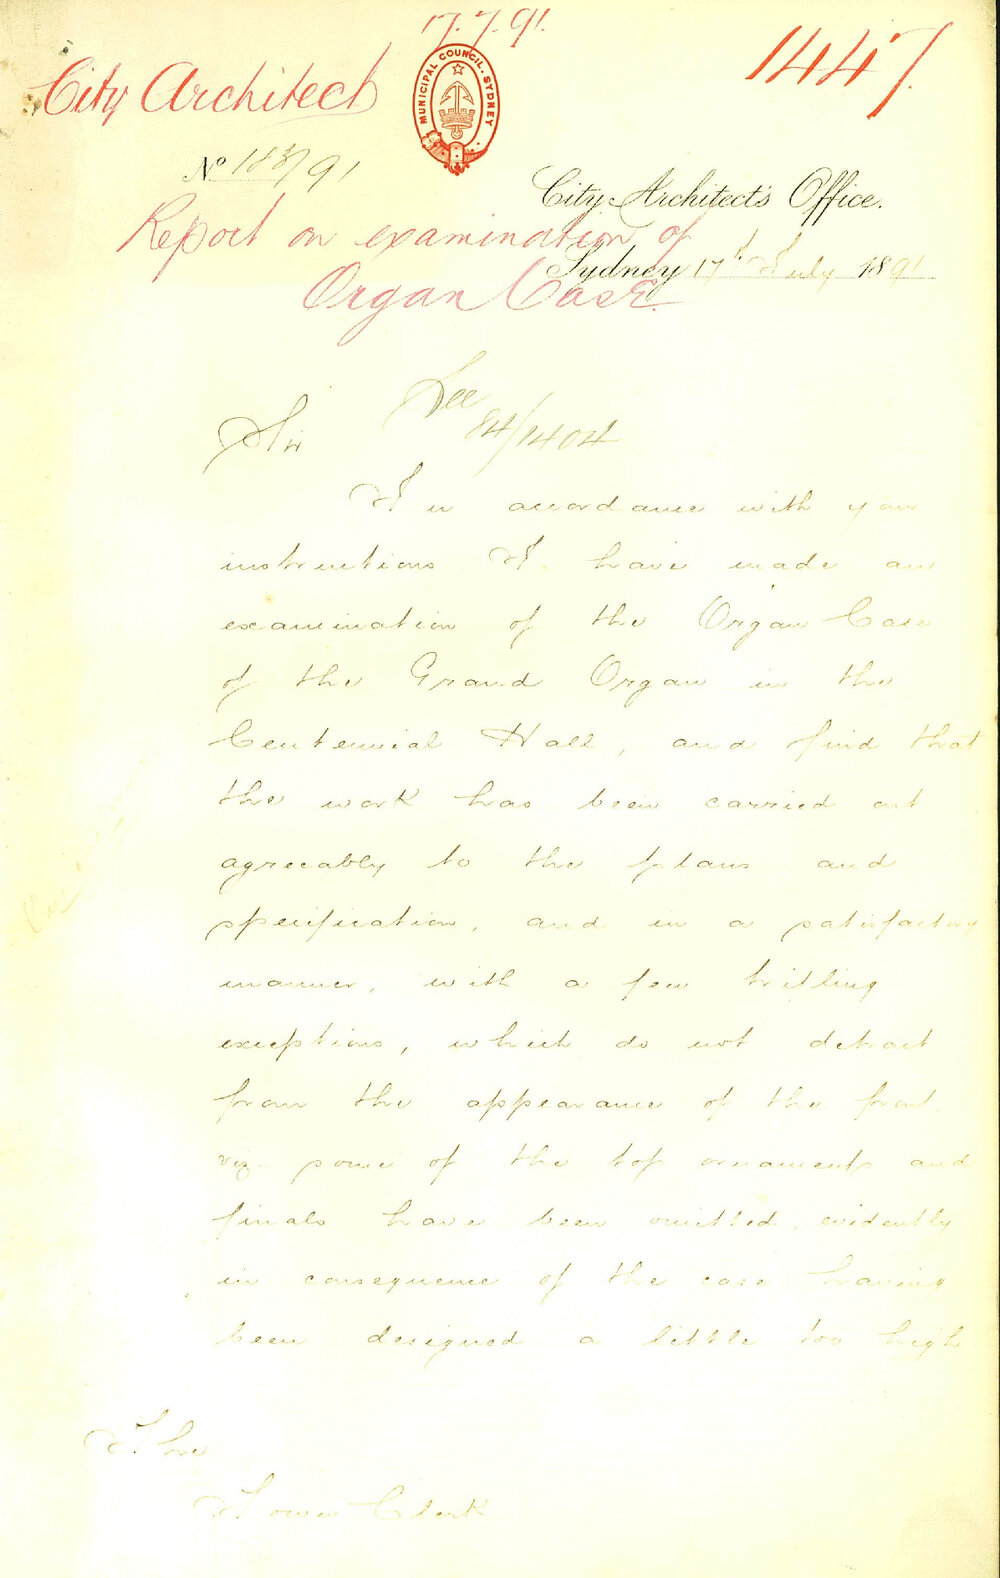 17.7.91.
1447.
City Architect
MUNICIPAL COUNCIL. SYDNEY
No 183/91
City Architect's Office.
Report on examination of
Sydney 17th July 1891
Organ Case.
See
84/1404
Sir
In accordance with your
instructions I have made an
examination of the Organ Case
of the Grand Organ in the
Centennial Hall, and find that
the work has been carried out
agreeably to the plans and
specification, and in a satisfactory
manner, with a few trifling
exceptions, which do not detract
from the appearance of the front.
viz. some of the top ornaments and
finals have been omitted, evidently
in consequence of the case having
been designed a little too high
The
Town Clerk